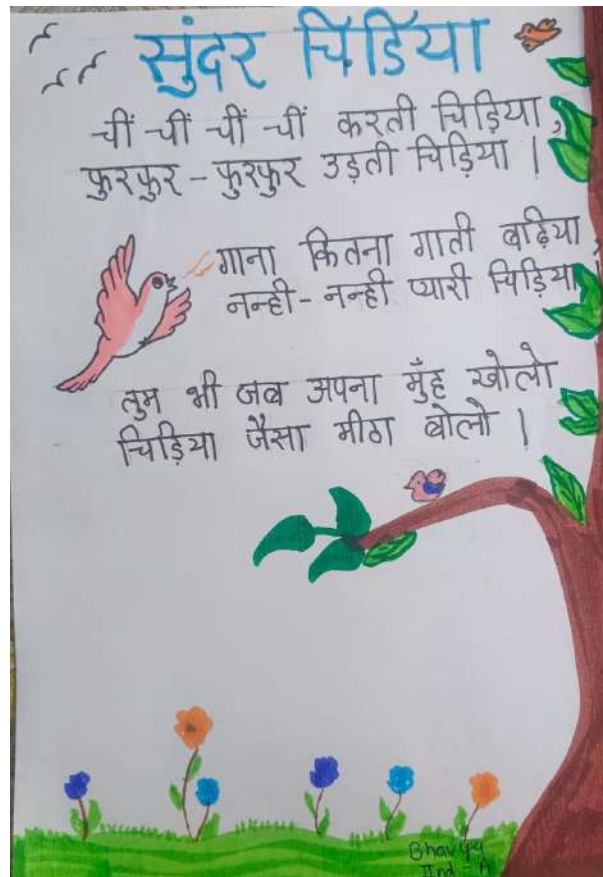 सुंदर चिडिया
चीं चीं चीं चीं करती चिड़िया,
फुरफुर - फुरफुर उड़ती चिड़िया |
गाना कितना गाती बढ़िया,
नन्ही - नन्ही प्यारी चिड़िया |
तुम भी जब अपना मुँह खोलो
चिड़िया जैसा मीठा बोलो |
Bhavya
IInd - A